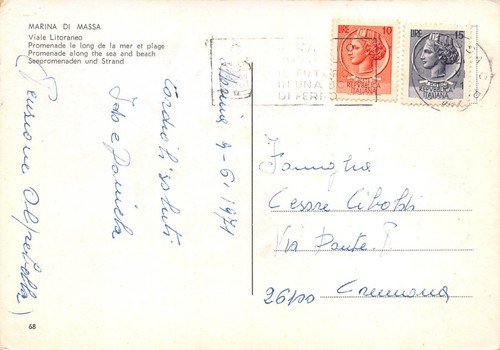 MARINA DI MASSA
Viale Litoraneo
Promenade le long de la mer et plage
Promenade along the sea and beach
Seepromenaden und Strand
LIRE 10
REPVBBLICA
ITALIANA
LIRE 15
REPVBBLICA
ITALIANA
IL FUTU
IN UNA
DI FERR
Cordiali saluti
e Daniela
Massa 9-6-1971
(Pensione
Famiglia
Cesare
Via Dante
26100 Cremona
68